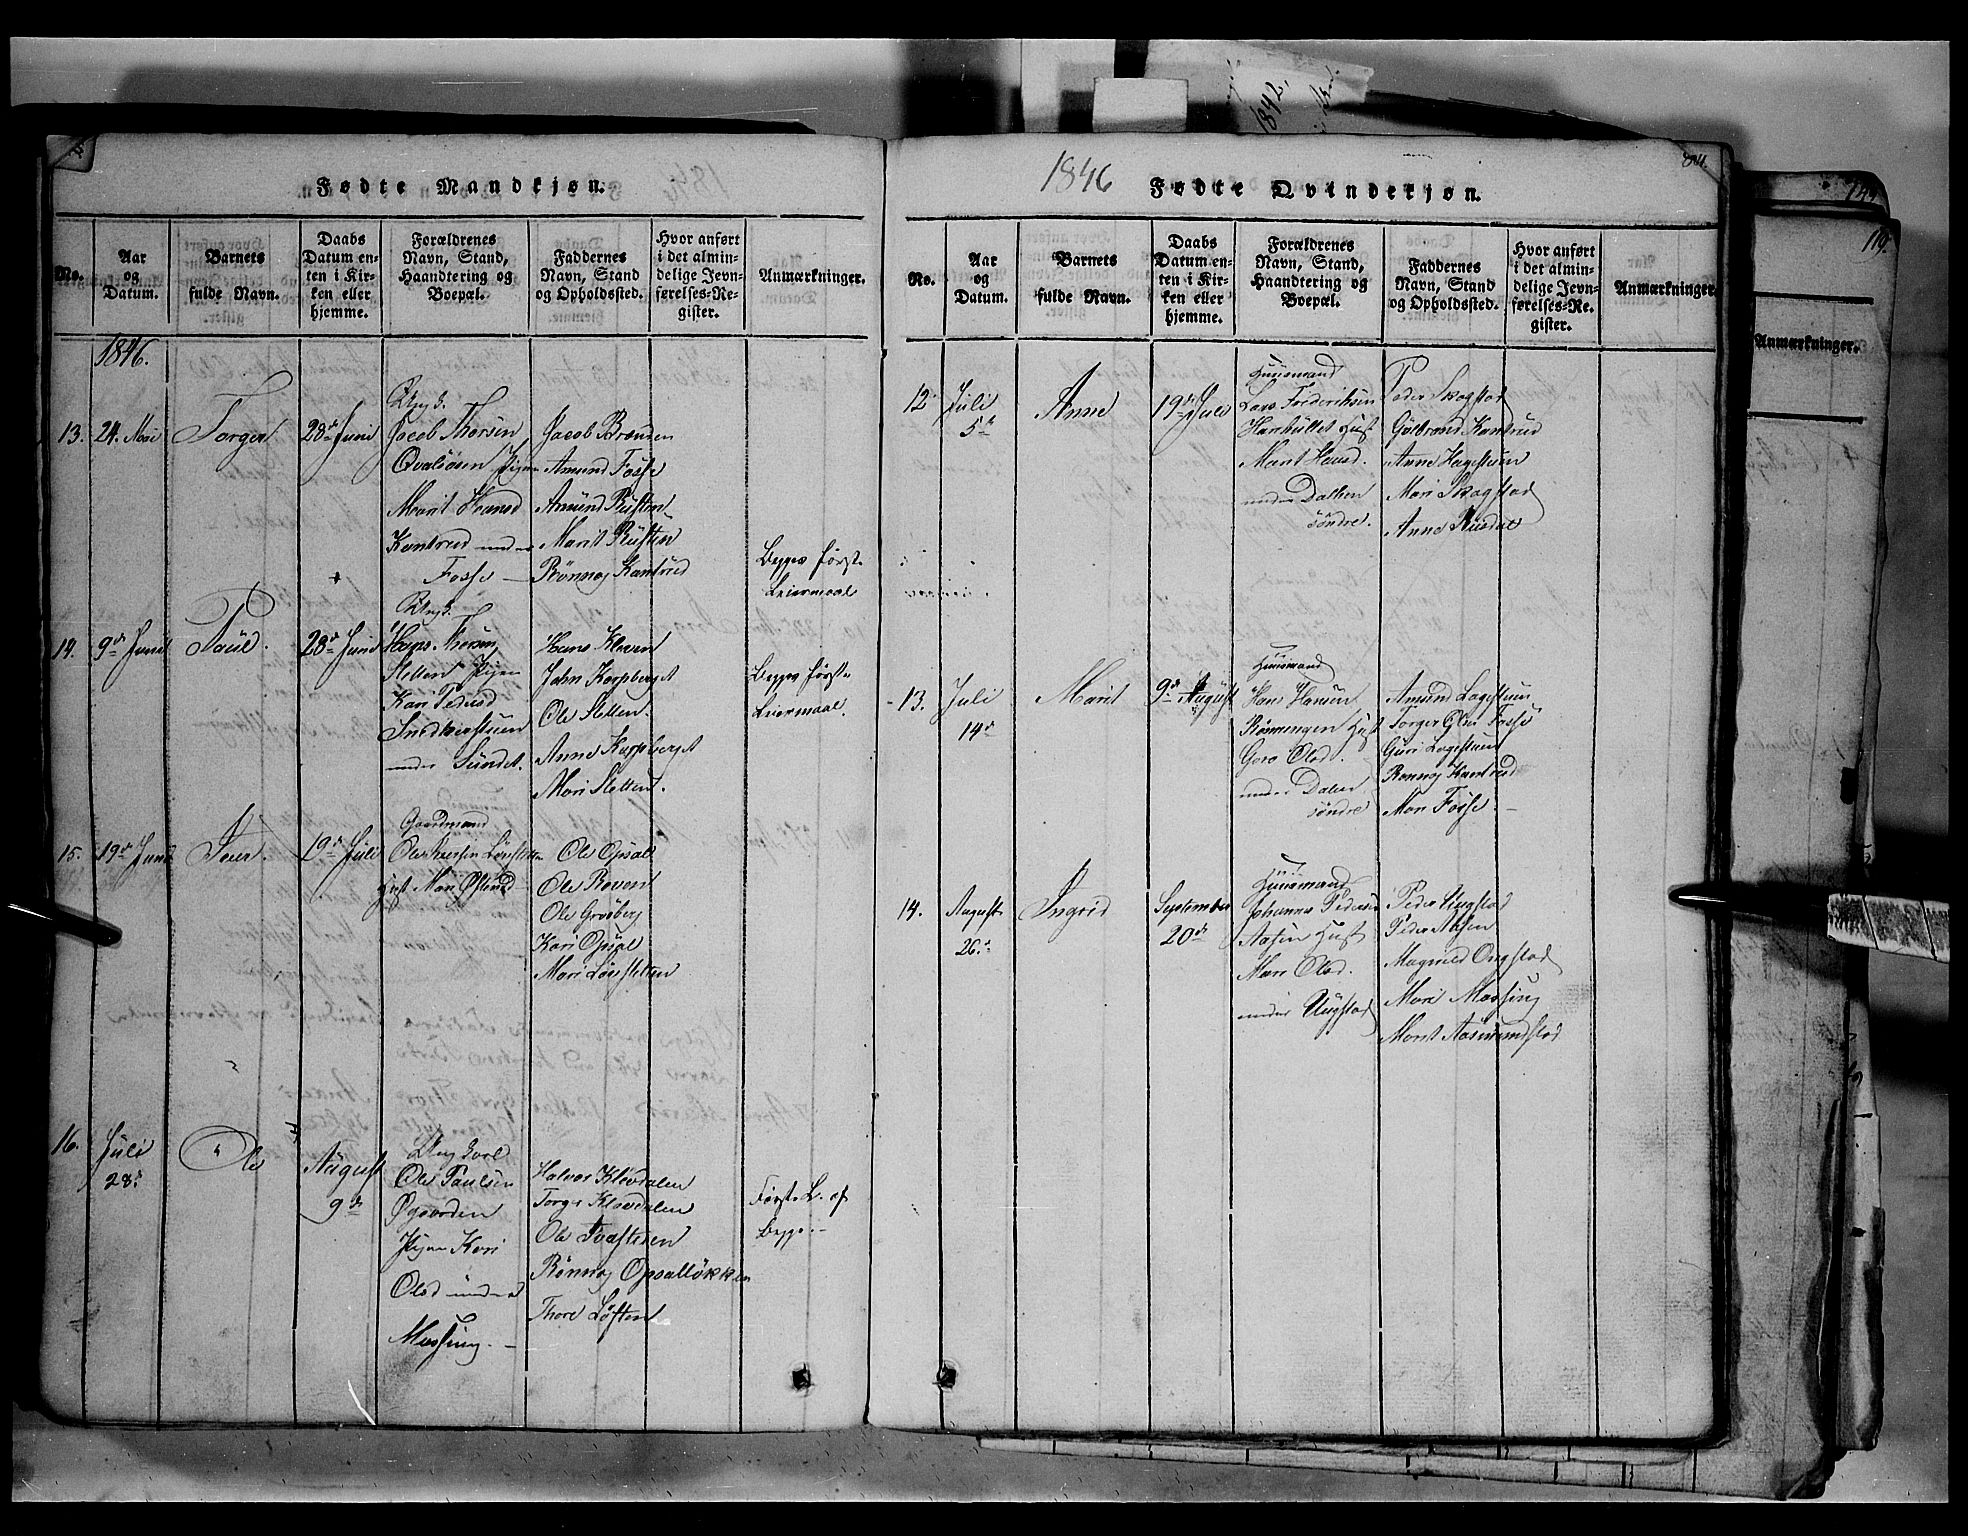 1842.
Fødte Mandkjøn.
No.
Aar og Datum.
Barnets fulde Navn.
Daabs Datum enten i Kirken eller hjemme.
Forældrenes Navn, Stand, Haandtering og Boepæl.
Faddernes Navn, Stand og Opholdssted.
Hvor anført i det almindelige Jevnførelses-Register.
Anmærkninger.
1846.
13. 24. Mai
Torger
28de Juni
Ungk.
Jacob Thorsen
Qvalsøsen Pigen
Marit Hansd
Kantrud under
Fosse
Jacob Brænden
Amund Fosse
Amund Rusten
Marit Rusten
Rønnog Kantrud
Begges første
Leiermaal
14. 9de Juni
Paul.
28de Juni
Ungk.
Hans Thorsen
Sletten Pigen
Kari Pedersd
under Sundet.
Hans Kleven
John Korpberget
Ole Sletten.
Anne Korpberget
Mari Sletten.
Begges første
Leiermaal.
15. 19de Juni
Iver.
19de Juli
Gaardmand
Ole Iversen Lønstetten
Hust Mari Østensd
Ole Opsal
Ole Roven
Ole Groberg
Kari Opsal
Mari Lønstetten
16. Juli
28.
Ole
August
9de
Ungkarl
Ole Paulsen
Øgaarden
Pigen Kari
Olsd under
Messing.
Halvor Kløvdalen
Torger Kløvdalen
Ole Tvesteen
Rønnog Opsalløkken
Thore Løften
Første L. af
Begge
1846
Fødte Qvindekjøn.
84.
No.
Aar og Datum.
Barnets fulde Navn.
Daabs Datum enten i Kirken eller hjemme.
Forældrenes Navn, Stand, Haandtering og Boepæl.
Faddernes Navn, Stand og Opholdssted.
Hvor anført i det almindelige Jevnførelses-Register.
Anmærkninger.
12. Juli
5te
Anne
19de Juli
Huusmand
Lars Frederiksen
Hust
Marit Hansd.
under Dalen
søndre.
Peder Skogstad
Gulbrand Kantrud
Anne Hagestuen
Mari Skogstad
Anne Rusdal
13. Juli
14de
Marit
9de August
Huusmand
Hans Hansen
Rønningen Hust
Goro Olsd.
under Dalen
søndre
Amund Lagestuen
Torger Olsen Fosse
Guri Lagestuen
Rønnog Kantrud
Mari Fosse
14. August
26.
Ingrid
September
20de
Huusmand
Johannes Pedersen
Aasen Hust
Mari Olsd.
under Ungstad
Peder Ungstad
Peder Aasen
Magnild Ongstad
Mari Messing
Marit Aasmundstad
119.
Anmærkninger.